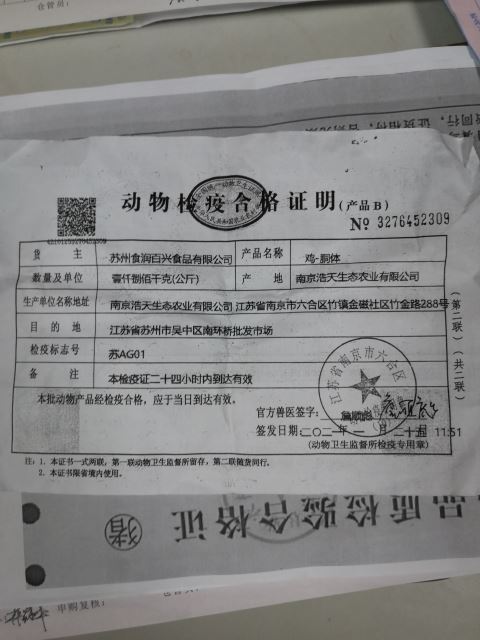 仓管员：
动物检疫合格证明(产品B)
№ 3276452309
货 主 苏州食润百兴食品有限公司 产品名称 鸡-胴体
数量及单位 壹仟捌佰千克(公斤) 产 地 南京浩天生态农业有限公司
生产单位名称地址 南京浩天生态农业有限公司 江苏省南京市六合区竹镇金磁社区竹金路288号
目 的 地 江苏省苏州市吴中区南环桥批发市场
检疫标志号 苏AG01
备 注 本检疫证二十四小时内到达有效
本批动物产品经检疫合格，应于当日到达有效。
官方兽医签字：
签发日期：二〇二一年 一 月 二十五日 11:51
(动物卫生监督所检疫专用章)
江苏省南京市六合区
（第二联）（共二联）
注：1. 本证书一式两联，第一联动物卫生监督所留存，第二联随货同行。
2. 本证书限省境内使用。
品质检验合格证
猪
申购复核：